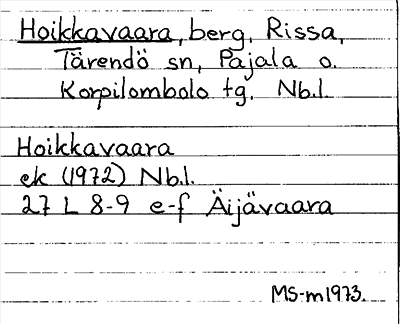 Hoikkavaara, berg, Rissa,
Tärendö sn, Pajala o.
Korpilombolo tg. Nb.l.
Hoikkavaara
ek (1972) Nb.l.
27 L 8-9 e-f Äijävaara
MS-m1973.